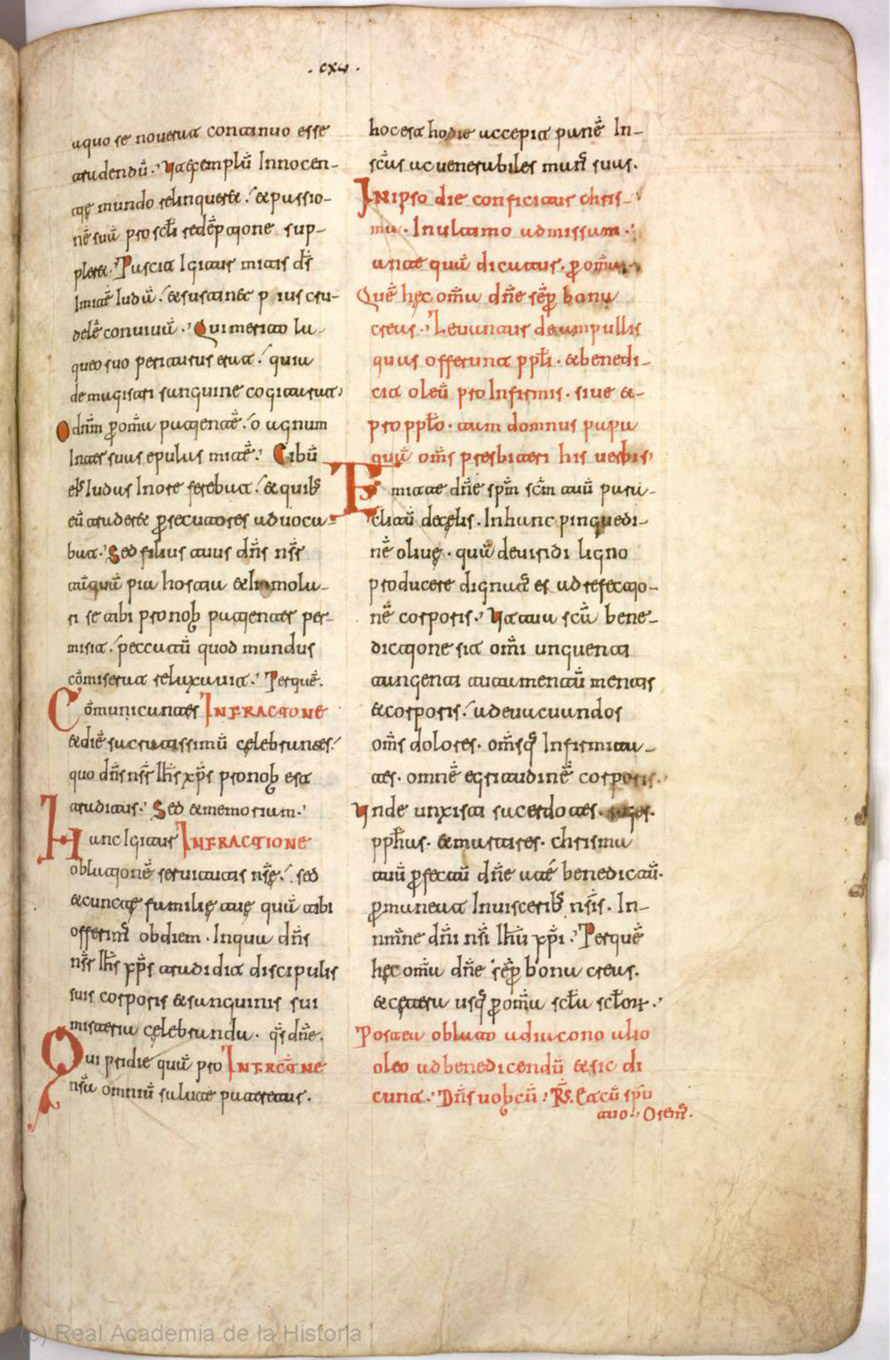 .cxv.
aquo se noverat continuo esse
tradendū. Ut ac exemplū Innocen-
tię mundo relinqueret / et passio-
nē suā pro scłi redēptione sup-
pleret. Pascit Igitur mitis dš
Imitē Iudā / et sustinet pius cru-
delē convivā. Qui merito la-
queo suo periturus erat / quia
de magistri sanguine cogitarat
O dnm̄ p omā patientē / o agnum
Inter suas epulas mitē. Cibū
ei' Iudas Inore ferebat / et quib'
eū traderet psecutores advoca-
bat. Sed filius tuus dns̄ nsr̄
tāquā pia hostia et Immola-
ri se tibi pro nob patienter per-
misit / peccatū quod mundus
cōmiserat relaxavit. Per quē.
Cōmunicantes INFRACTIONE
et diē sacratissimū cęlebrantes /
quo dns̄ nsr̄ Ihs̄ xps̄ pro nob est
traditus. Sed et memoriam.
Hunc Igitur INFRACTIONE
oblationē servitutis nsę̄ / sed
et cunctę familię tuę quā tibi
offerim' ob diem. In qua dns̄
nsr̄ Ihs̄ xps̄ tradidit discipulis
suis corporis et sanguinis sui
misteria cęlebranda. qs̄ dnē.
Qui pridie quā pro INFRCT̄NE
nsā omniū salute pateretur.
hoc est hodie accepit panē In-
scās ac venerabiles man' suas.
In ipso die conficitur chris-
ma. In ultimo ad missam.
ante quā dicatur. p
Quę hęc omā dnē sēp bona
creas. Levantur de ampullis
quas offerunt ppłi. et benedi-
cit oleū pro Infirmis. sive et
pro ppło. tam domnus papa
quā oms̄ presbiteri his verbis
Emitte dnē spm̄ scm̄ tuū para-
clitū de cęlis. In hanc pinguedi-
nē olivę. quā de viridi ligno
producere dignat' es ad refectio-
nē corporis. Ut tua scā bene-
dictione sit omī unguenti
tangenti tutamentū mentis
et corporis / ad evacuandos
oms̄ dolores. omsq' Infirmita-
tes. omnē egritudinē corporis.
Unde unxisti sacerdotes. reges.
pphās. et martires. chrisma
tuū pfectū dnē a te benedictū.
pmanent In visceribus nsīs. In-
nmīne dnī nsī Ihū xpī. Per quē
hęc omā dnē sēp bona creas.
et cętera usq' p omā scła scłor.
Postea oblato a diacono alio
oleo ad benedicendū et sic di
cunt. Dns̄ vobcū. R̄s. Et cū spū
tuo. Orem'.
(c) Real Academia de la Historia